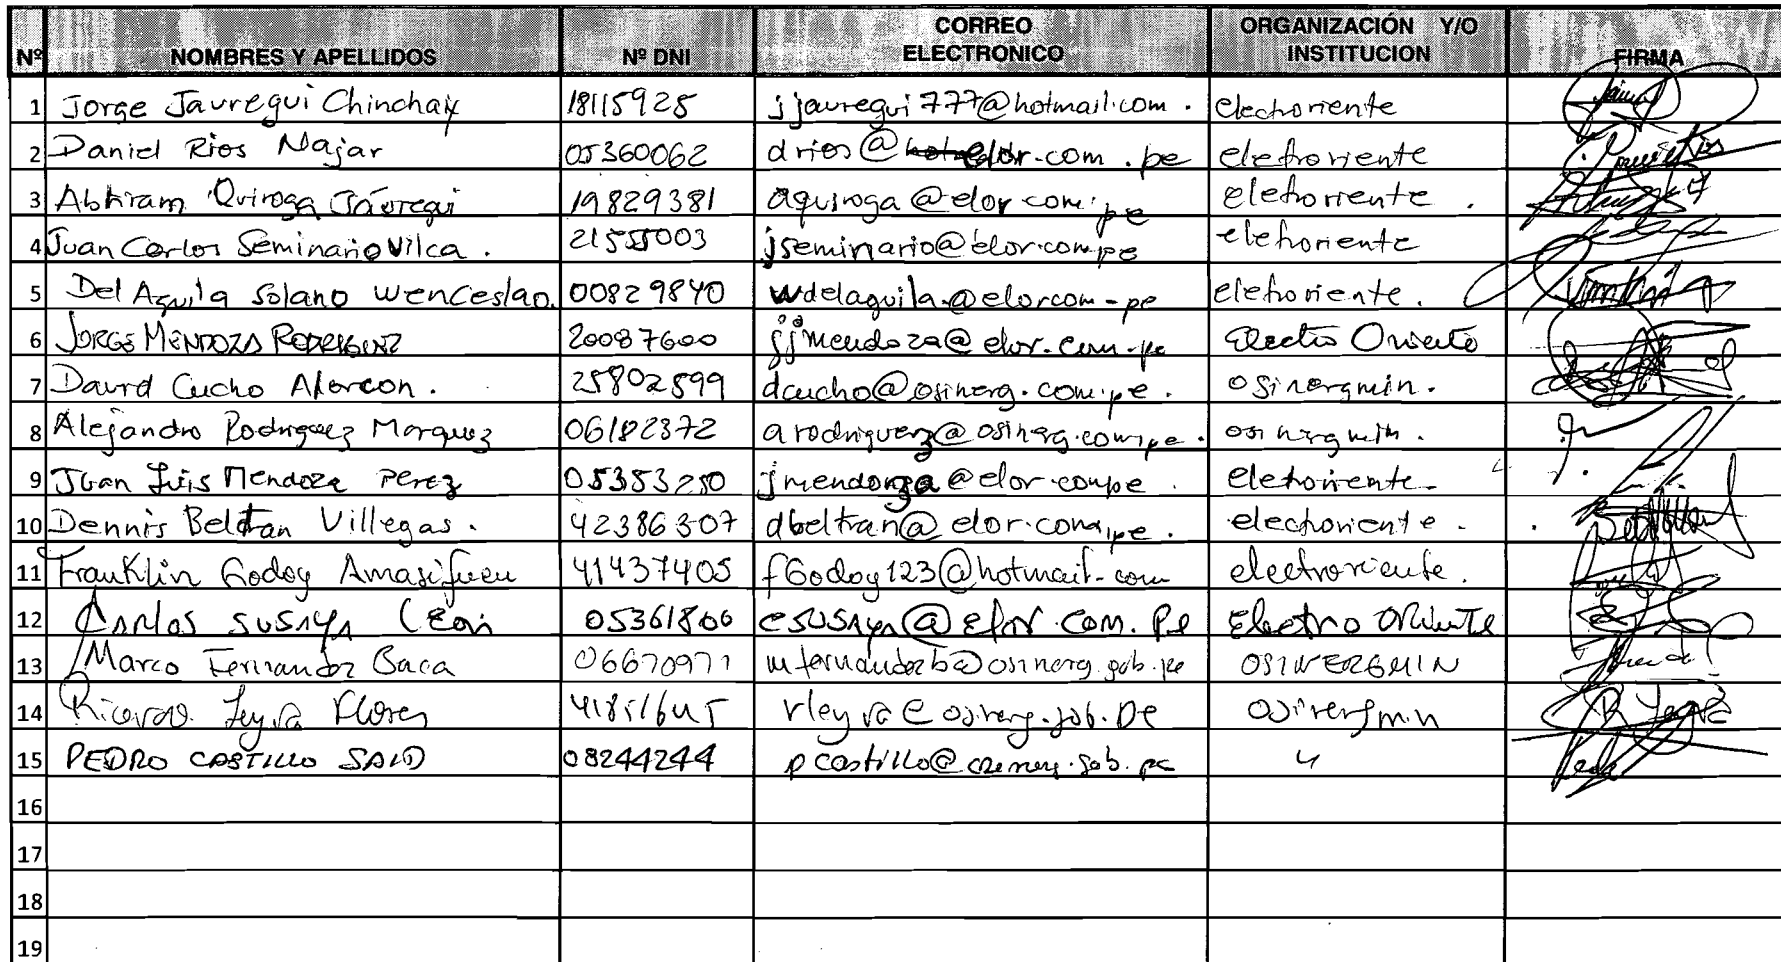 Nº NOMBRES Y APELLIDOS Nº DNI CORREO ELECTRONICO ORGANIZACIÓN Y/O INSTITUCION FIRMA
1 Jorge Jauregui Chinchay 18115925 jjauregui777@hotmail.com. electroriente
2 Daniel Rios Najar 05360062 drios@elor.com.pe eletroriente
3 Abhiram Quiroga Jáuregui 19829381 aquiroga@elor.com.pe eletroriente.
4 Juan Carlos Seminario Vilca. 21555003 jseminario@elor.com.pe eletroriente
5 Del Aguila Solano Wenceslao. 00829840 wdelaguila.@elor.com-pe eletroriente.
6 JORGE MENDOZA RODRIGUEZ 20087600 jjmendoza@elor.com.pe Electro Oriente
7 David Cucho Alarcon. 25802599 dcucho@osinerg.com.pe. osinergmin.
8 Alejandro Rodriguez Marquez 06182372 arodriguerz@osinerg.com.pe. osinergmin.
9 Juan Luis Mendoza Perez 05353250 jmendonza@elor.com.pe. eletroriente.
10 Dennis Beltran Villegas. 42386307 dbeltran@elor.com.pe. electroriente.
11 Franklin Godoy Amasifuen 41437405 fGodoy123@hotmail.com electroriente.
12 Carlos Susaya León 05361806 csusaya@elor.com.pe Electro Oriente
13 Marco Fernandez Baca 06670971 mfernandezb@osinerg.gob.pe OSINERGMIN
14 Ricardo Leyva Flores rleyva@osinerg.gob.pe Osinergmin
15 PEDRO CASTILLO 08244244 pcastillo@osinerg.gob.pe "
16
17
18
19